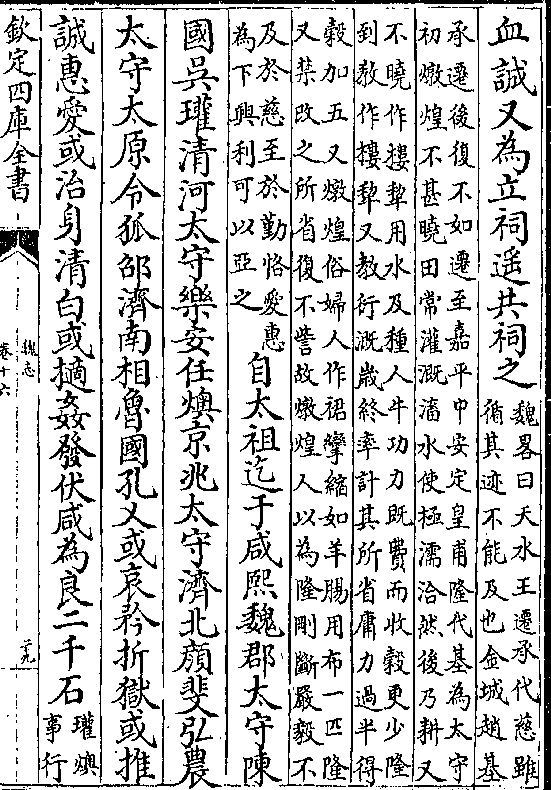 血誠又為立祠遥共祠之
魏畧曰天水王遷承代慈雖
循其迹不能及也金城趙基
承遷後復不如遷至嘉平中安定皇甫隆代基為太守
初燉煌不甚曉田常灌溉滀水使極濡洽然後乃耕又
不曉作摟犂用水及種人牛功力既費而收穀更少隆
到教作樓犂又教衍溉嵗終率計其所省庸力過半得
穀加五又燉煌俗婦人作裙攣縮如羊腸用布一匹隆
又禁改之所省復不訾故燉煌人以為隆剛斷嚴毅不
及於慈至於勤恪愛惠
為下興利可以亞之
自太祖迄于咸熙魏郡太守陳
國吳瓘清河太守樂安任燠京兆太守濟北顔斐弘農
太守太原令狐邵濟南相魯國孔乂或哀矜折獄或推
誠惠愛或治身清白或擿姦發伏咸為良二千石
瓘燠
事行
欽定四庫全書
魏志
卷十六
二十九